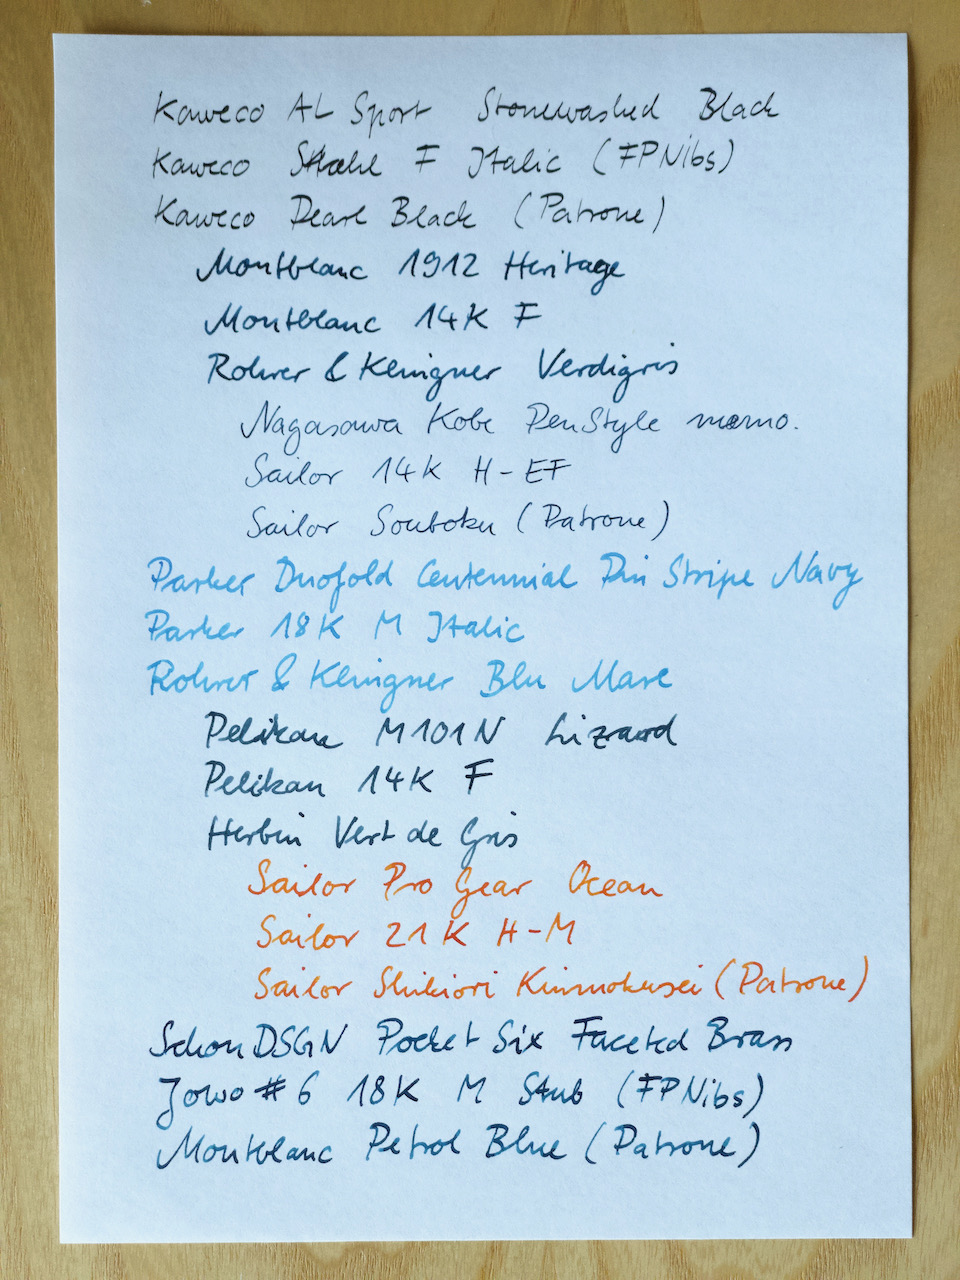 Kaweco AL Sport Stonewashed Black
Kaweco Stahl F Italic (FPNibs)
Kaweco Pearl Black (Patrone)
Montblanc 1912 Heritage
Montblanc 14K F
Rohrer & Klingner Verdigris
Nagasawa Kobe PenStyle memo.
Sailor 14K H-EF
Sailor Souboku (Patrone)
Parker Duofold Centennial Pin Stripe Navy
Parker 18K M Italic
Rohrer & Klingner Blu Mare
Pelikan M101N Lizard
Pelikan 14K F
Herbin Vert de Gris
Sailor Pro Gear Ocean
Sailor 21K H-M
Sailor Shikiori Kinmokusei (Patrone)
Schon DSGN Pocket Six Faceted Brass
Jowo #6 18K M Stub (FPNibs)
Montblanc Petrol Blue (Patrone)